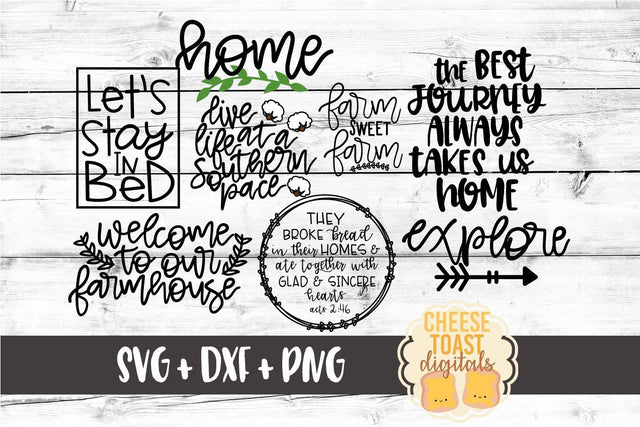 home
Let's
Stay
IN
BeD
live
life at a
southern
pace
farm
SWEET
farm
the BEST
JOURNEY
ALWAYS
TAKES US
HOME
welcome
to our
farmhouse
THEY
BROKE bread
in their HOMES &
ate together with
GLAD & SINCERE
hearts
acts 2:46
explore
SVG + DXF + PNG
CHEESE
TOAST
digitals